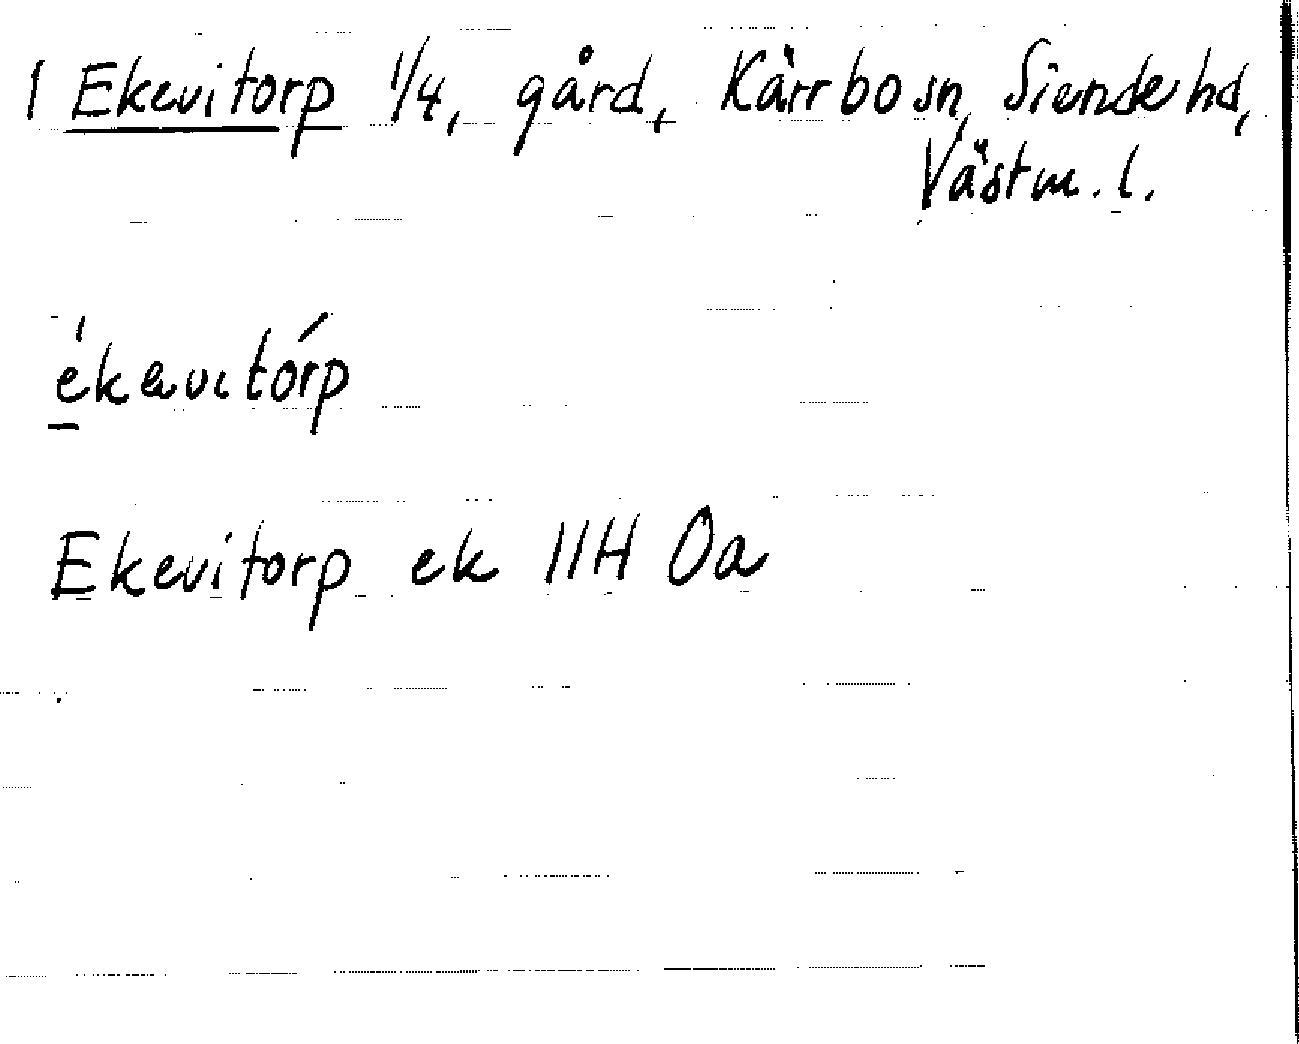 1 Ekevitorp 1/4, gård, Kärrbo sn, Siende hd,
Västm. l.
ékavɩtórp
Ekevitorp ek 11H Oa